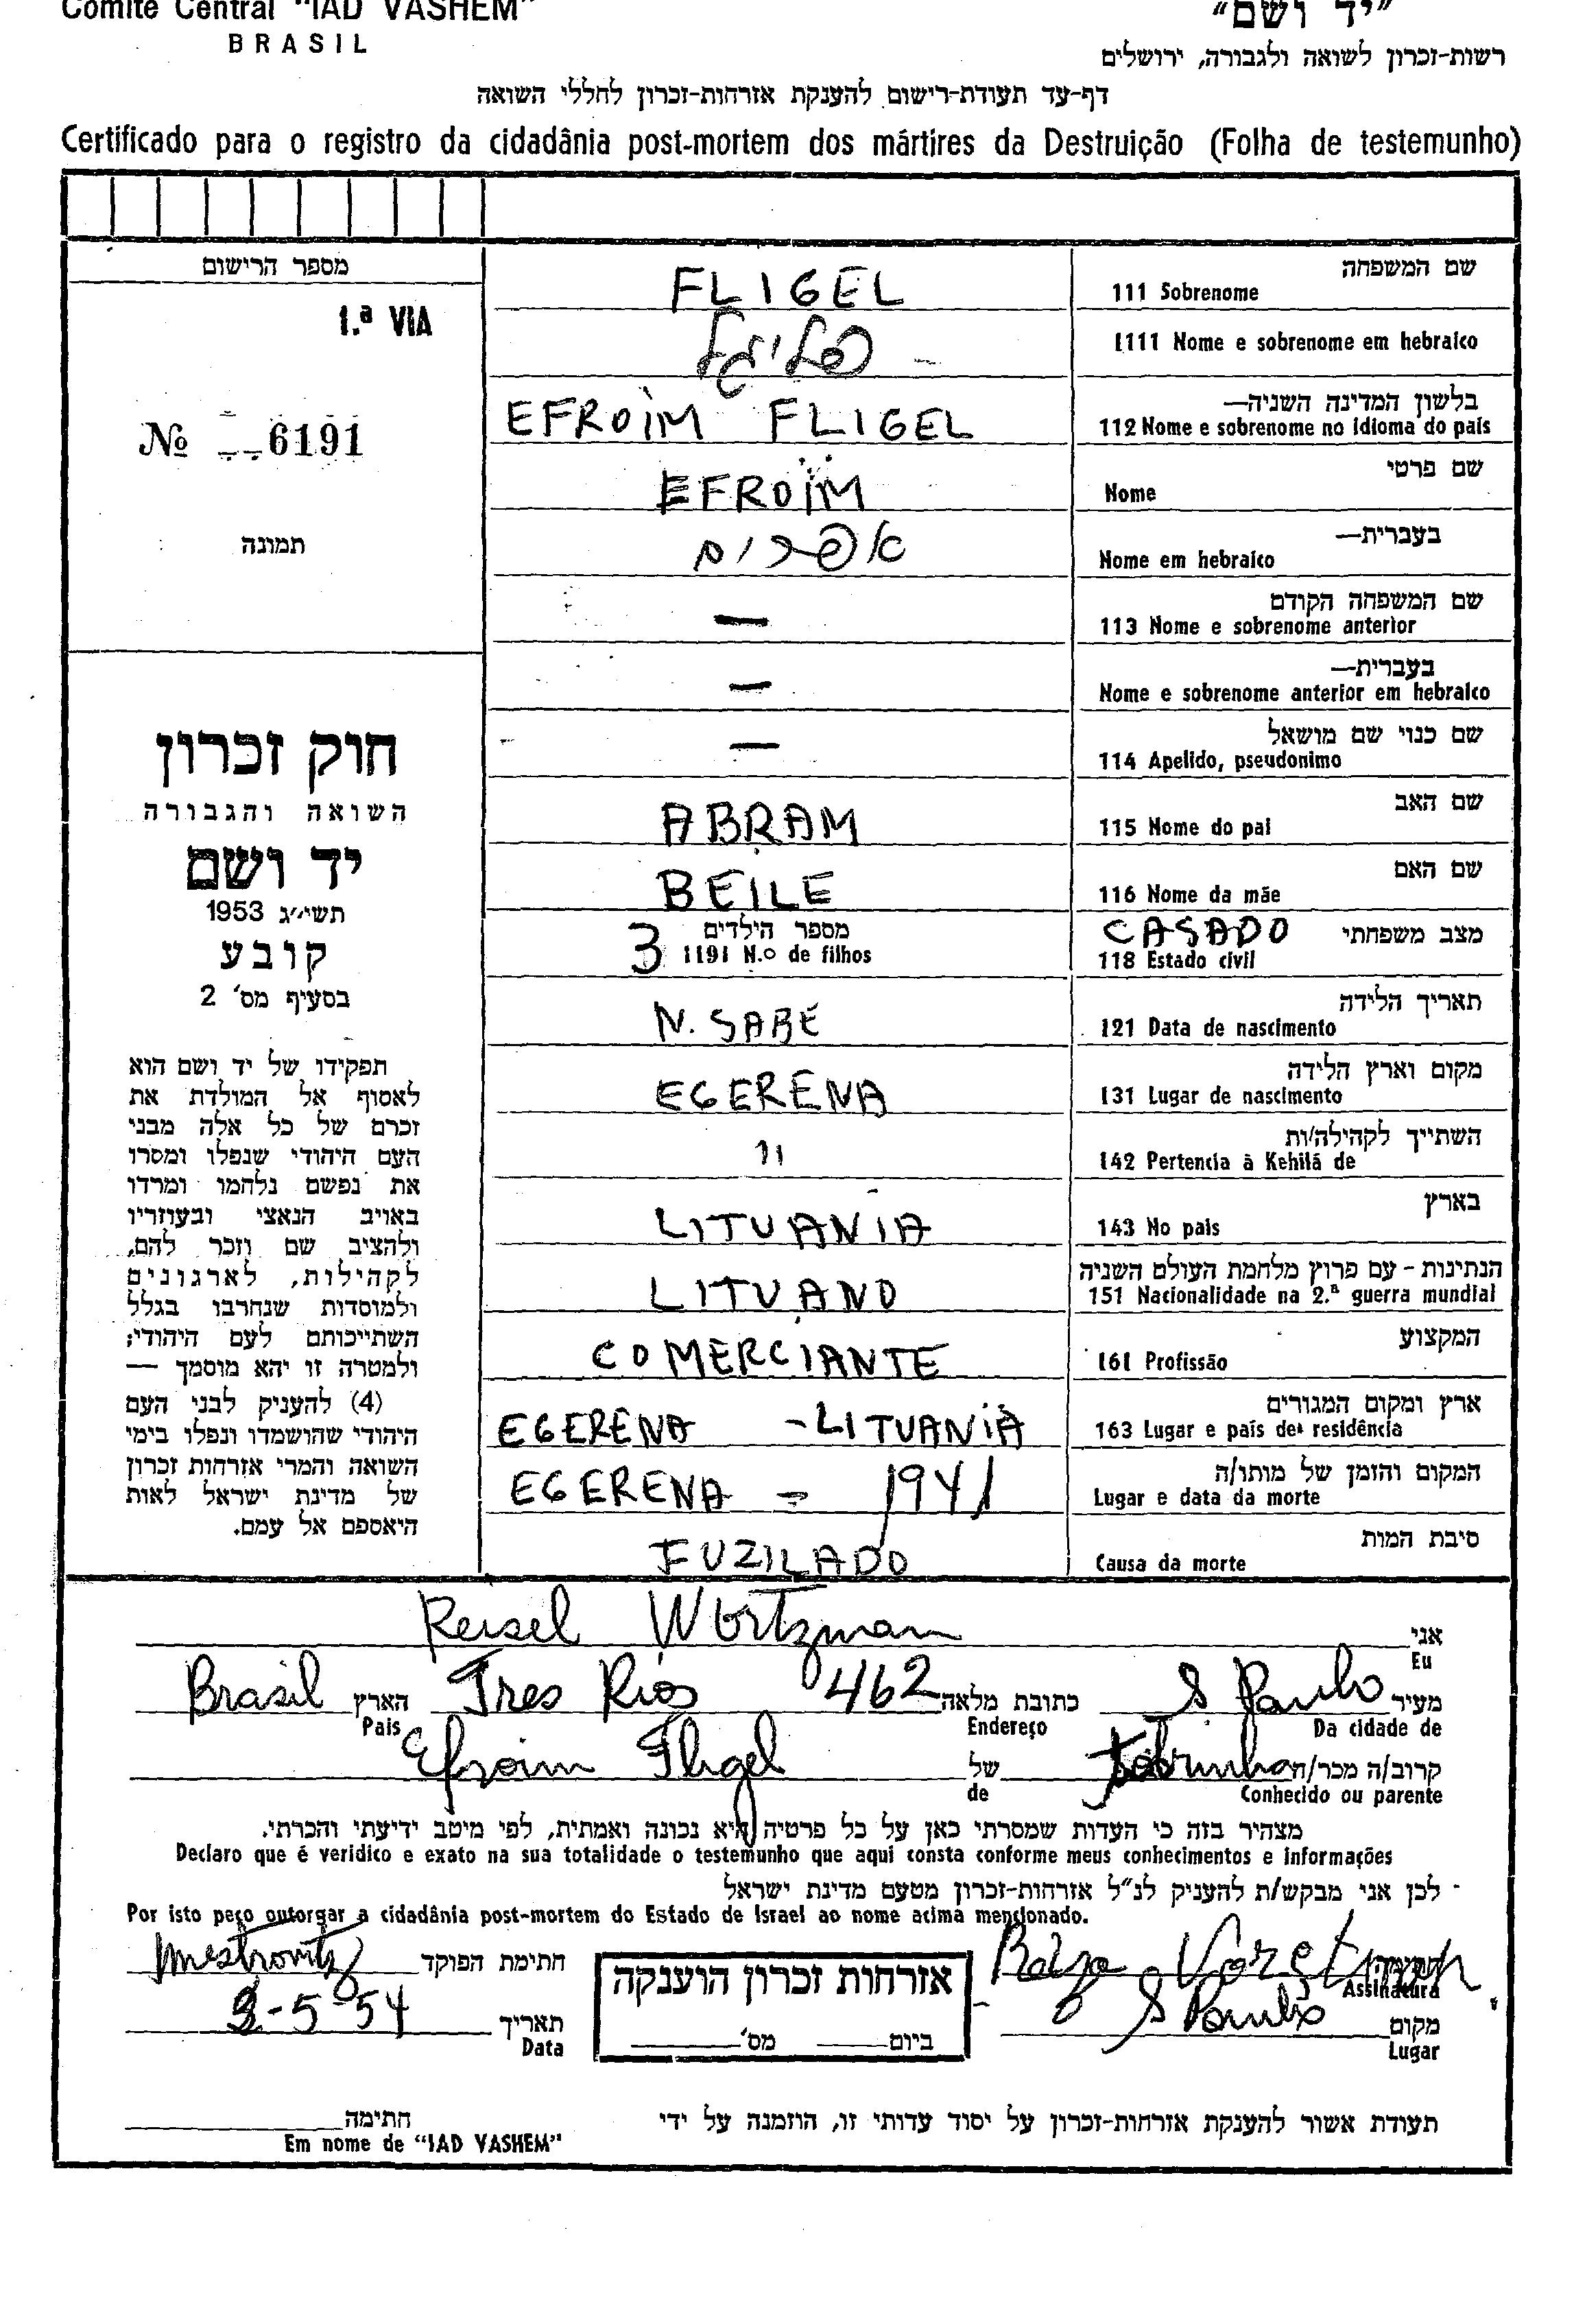 Comite Central "IAD VASHEM"
"יד ושם"
BRASIL
רשות-זכרון לשואה ולגבורה, ירושלים
דף-עד תעודת-רישום להענקת אזרחות-זכרון לחללי השואה
Certificado para o registro da cidadânia post-mortem dos mártires da Destruição (Folha de testemunho)
מספר הרישום
1.ª VIA
№ 6191
תמונה
חוק זכרון
השואה והגבורה
יד ושם
תשי״ג 1953
קובע
בסעיף מס' 2
תפקידו של יד ושם הוא
לאסוף אל המולדת את
זכרם של כל אלה מבני
העם היהודי שנפלו ומסרו
את נפשם נלחמו ומרדו
באויב הנאצי ובעוזריו
ולהציב שם וזכר להם,
לקהילות, לארגונים
ולמוסדות שנחרבו בגלל
השתייכותם לעם היהודי;
ולמטרה זו יהא מוסמך —
(4) להעניק לבני העם
היהודי שהושמדו ונפלו בימי
השואה והמרי אזרחות זכרון
של מדינת ישראל לאות
היאספם אל עמם.
שם המשפחה
111 Sobrenome FLIGEL
1111 Nome e sobrenome em hebraico פליגל -
בלשון המדינה השניה—
112 Nome e sobrenome no idioma do pais EFROIM FLIGEL
שם פרטי
Nome EFROIM
בעברית—
Nome em hebraico אפרים
שם המשפחה הקודם
113 Nome e sobrenome anterior —
בעברית—
Nome e sobrenome anterior em hebraico —
שם כנוי שם מושאל
114 Apelido, pseudonimo —
שם האב
115 Nome do pai ABRAM
שם האם
116 Nome da mãe BEILE
מצב משפחתי CASADO
118 Estado civil
מספר הילדים
1191 N.o de filhos 3
תאריך הלידה
121 Data de nascimento N. SABE
מקום וארץ הלידה
131 Lugar de nascimento EGERENA
השתייך לקהילה/ות
142 Pertencia à Kehilá de "
בארץ
143 No pais LITUANIA
הנתינות - עם פרוץ מלחמת העולם השניה
151 Nacionalidade na 2.ª guerra mundial LITUANO
המקצוע
161 Profissão COMERCIANTE
ארץ ומקום המגורים
163 Lugar e pais de residência EGERENA - LITUANIA
המקום והזמן של מותו/ה
Lugar e data da morte EGERENA - 1941
סיבת המות
Causa da morte FUZILADO
אני Reisel Wortzman
Eu
מעיר S Paulo כתובת מלאה Tres Rios 462 הארץ Brasil
Da cidade de Endereço Pais
קרוב/ה מכר/ה Sobrinha של Efroim Fligel
Conhecido ou parente de
מצהיר בזה כי העדות שמסרתי כאן על כל פרטיה היא נכונה ואמתית, לפי מיטב ידיעתי והכרתי.
Declaro que é veridico e exato na sua totalidade o testemunho que aqui consta conforme meus conhecimentos e informações
לכן אני מבקש/ת להעניק לנ"ל אזרחות-זכרון מטעם מדינת ישראל
Por isto peço outorgar a cidadânia post-mortem do Estado de Israel ao nome acima mencionado.
חתימת הפוקד
אזרחות זכרון הוענקה
Assinatura
מקום S Paulo
Lugar
ביום מס'
תאריך -5-54
Data
תעודת אשור להענקת אזרחות-זכרון על יסוד עדותי זו, הוזמנה על ידי
חתימה
Em nome de "IAD VASHEM"